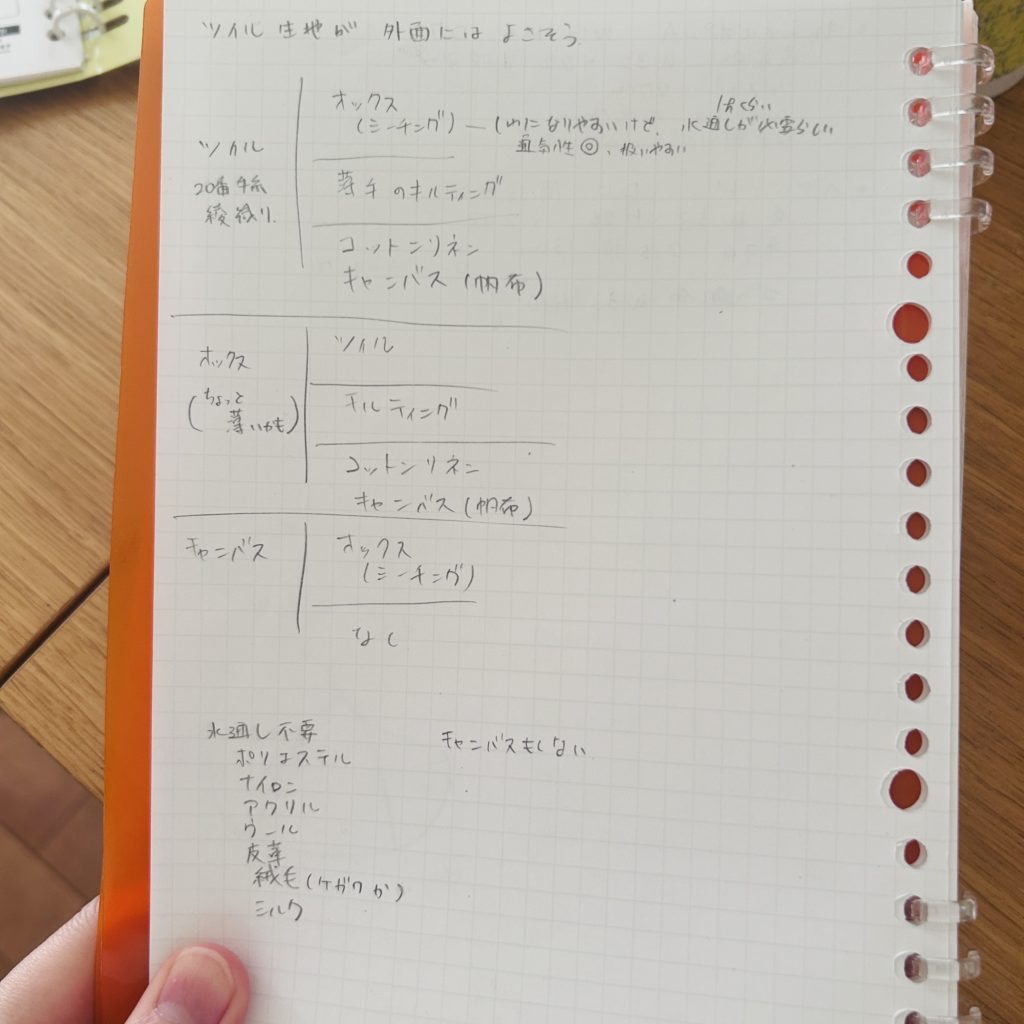 ツイル 生地が 外面には よさそう
ツイル
20番手糸
綾織り.
オックス
(シーチング) ― しわになりやすいけど、水通しが必要らしい
1hくらい
通気性◎、扱いやすい
薄手のキルティング
コットンリネン
キャンバス(帆布)
オックス
(ちょっと
薄いかも)
ツイル
キルティング
コットンリネン
キャンバス(帆布)
キャンバス
オックス
(シーチング)
なし
水通し不要
ポリエステル
ナイロン
アクリル
ウール
皮革
絨毛(ケガワか)
シルク
キャンバスもしない